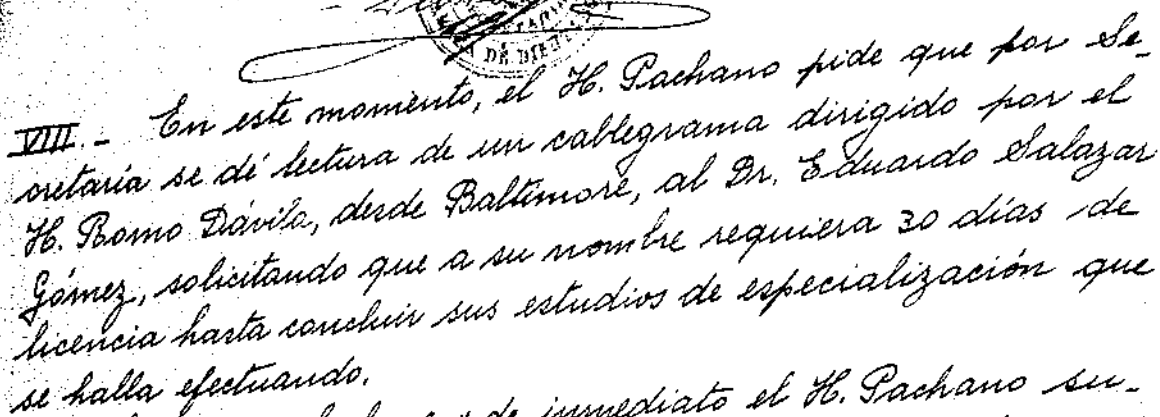 DE DIE
VIII.- En este momento, el H. Pachano pide que por Se-
cretaría se dé lectura de un cablegrama dirigido por el
H. Romo Dávila, desde Baltimore, al Dr. Eduardo Salazar
Gómez, solicitando que a su nombre requiera 30 días de
licencia hasta concluir sus estudios de especialización que
se halla efectuando.
de inmediato el H. Pachano su-